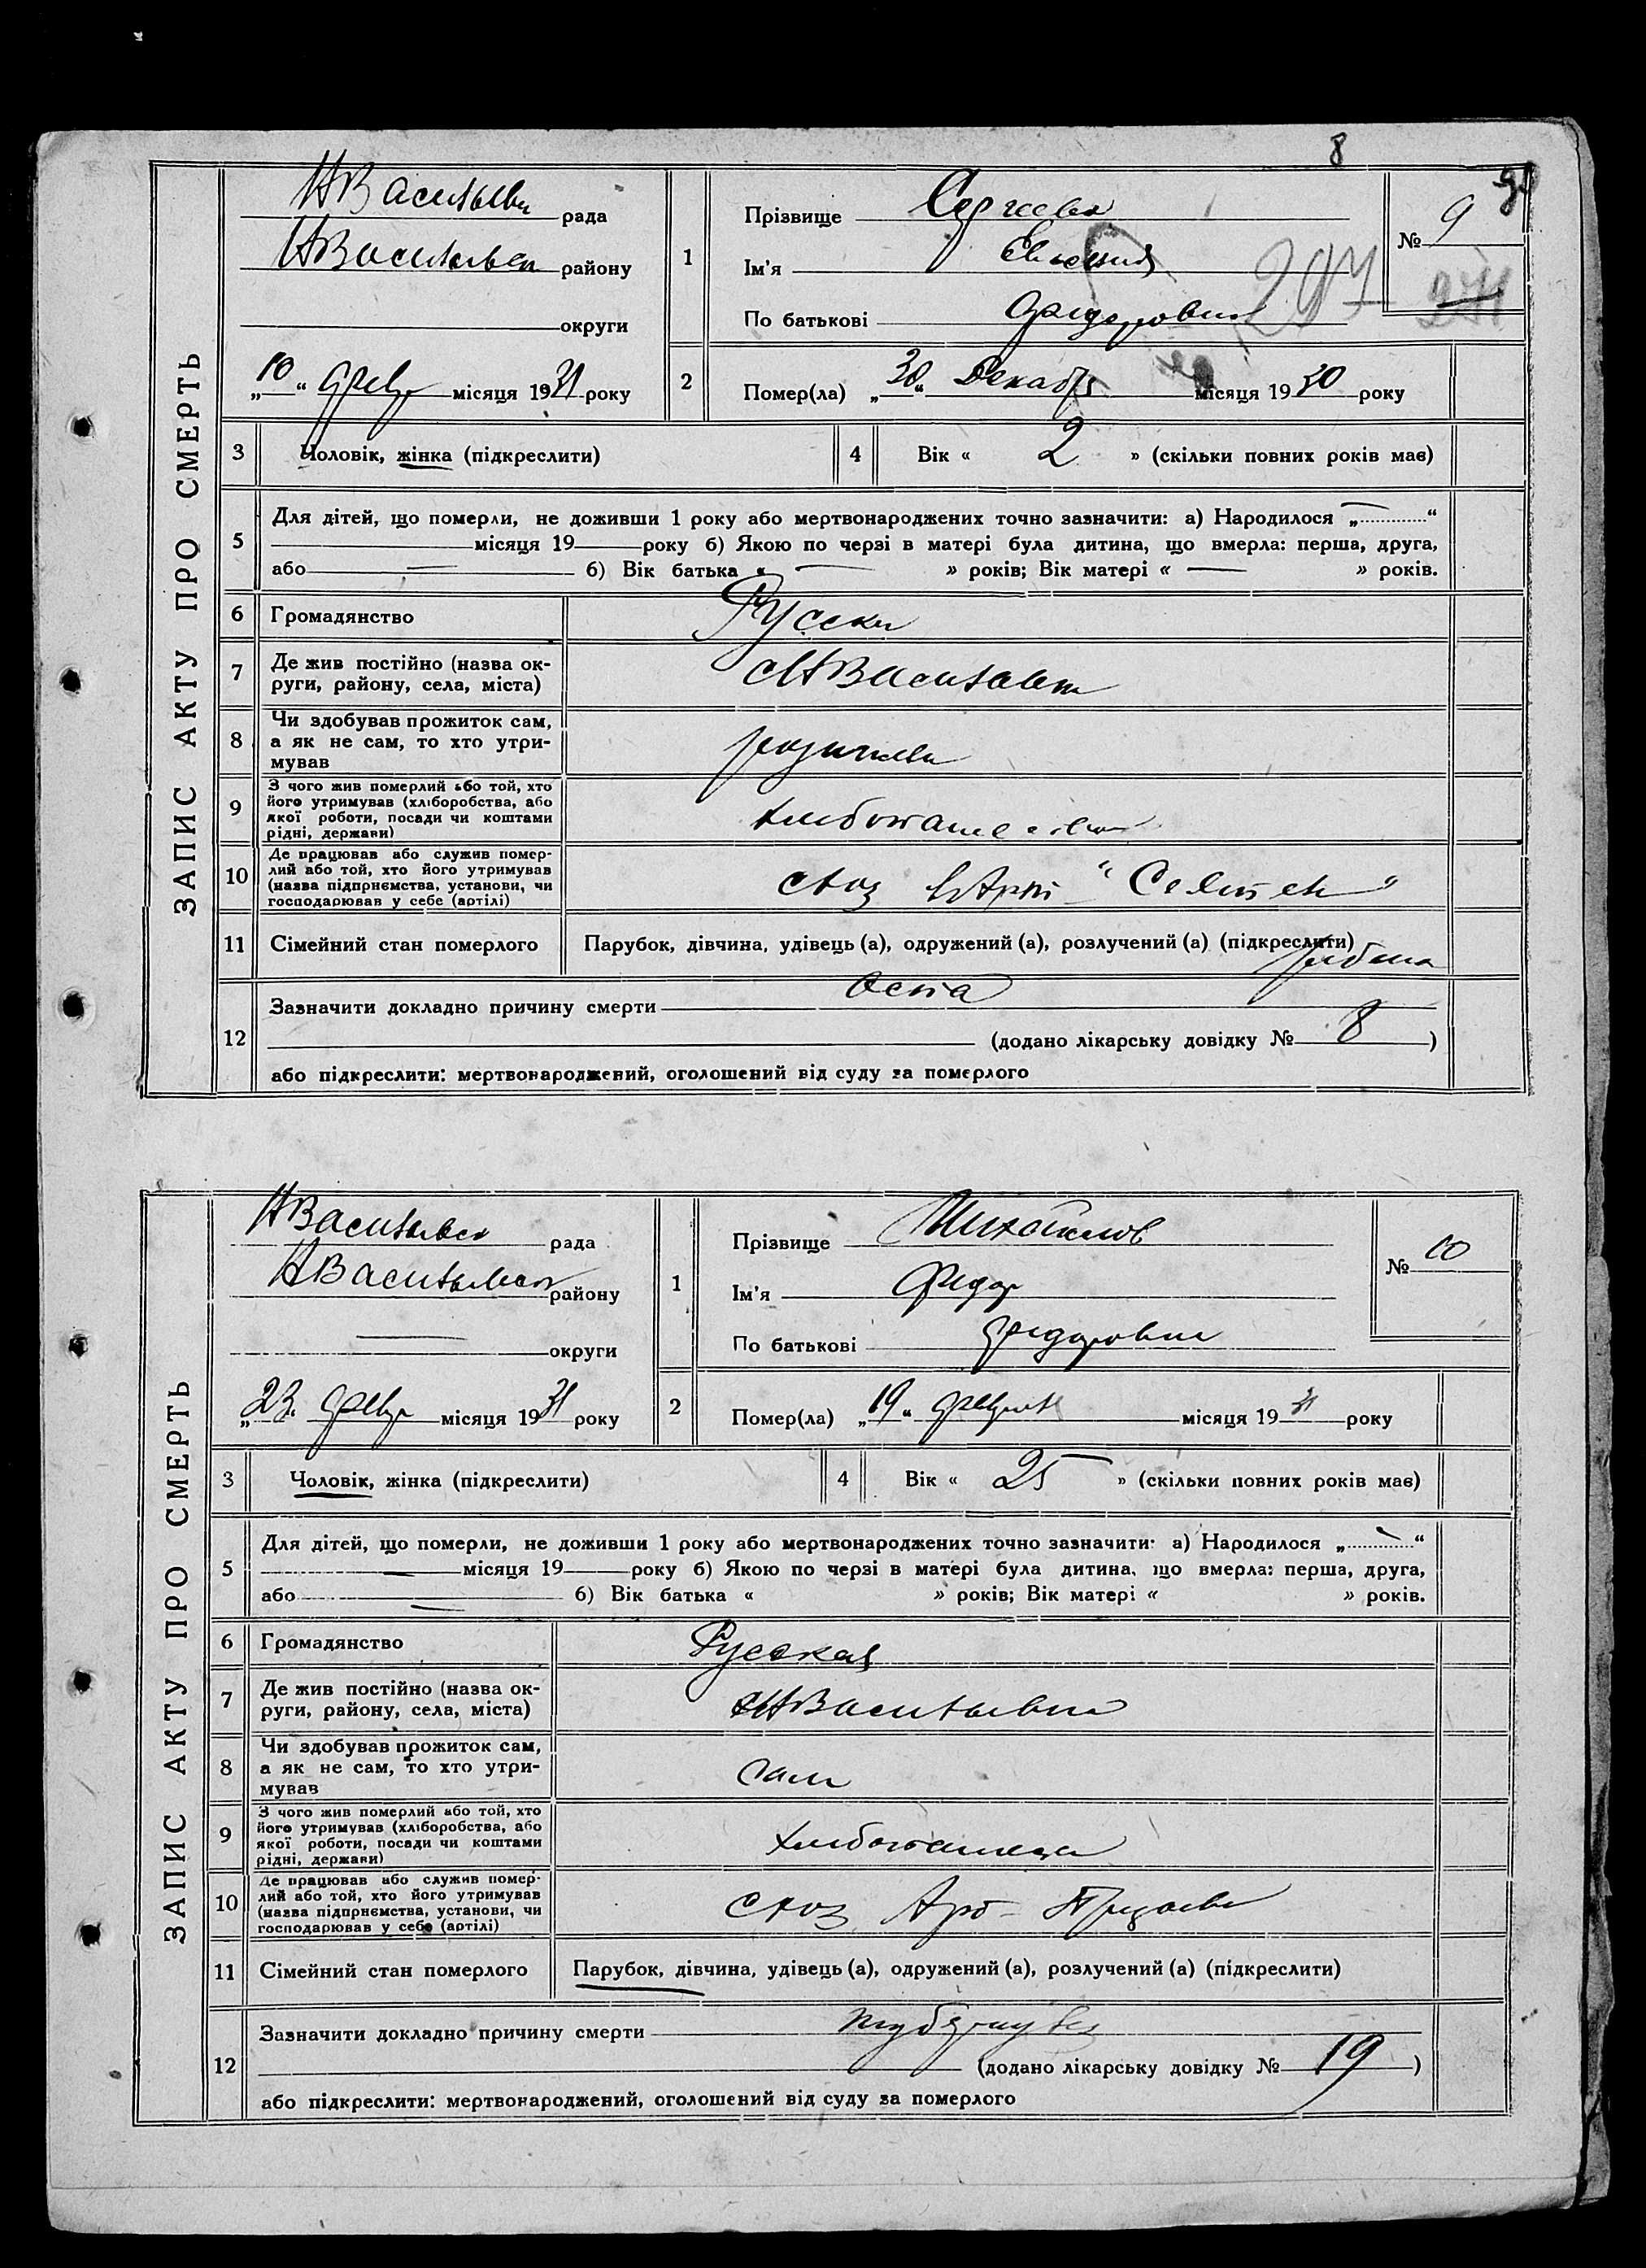 8
ЗАПИС АКТУ ПРО СМЕРТЬ
НВасильев рада
НВасильев району
округи
„10“ февр місяця 1931 року
1
Прізвище Сергеева
Ім'я
По батькові Федоровна
№ 9
297
2
Помер(ла) „30“ Декабря місяця 1930 року
3 Чоловік, жінка (підкреслити)
4 Вік « 2 » (скільки повних років має)
5 Для дітей, що померли, не доживши 1 року або мертвонароджених точно зазначити: а) Народилося „—“
місяця 19 року б) Якою по черзі в матері була дитина, що вмерла: перша, друга,
або — б) Вік батька « — » років; Вік матері « — » років.
6 Громадянство Русски
7 Де жив постійно (назва ок-
руги, району, села, міста) с НВасильевка
8 Чи здобував прожиток сам,
а як не сам, то хто утри-
мував родители
9 З чого жив померлий або той, хто
його утримував (хліборобства, або
якої роботи, посади чи коштами
рідні, держави)
10 Де працював або служив помер-
лий або той, хто його утримував
(назва підприємства, установи, чи
господарював у себе (артілі)
11 Сімейний стан померлого Парубок, дівчина, удівець (а), одружений (а), розлучений (а) (підкреслити)
12 Зазначити докладно причину смерти Оспа
(додано лікарську довідку № 8 )
або підкреслити: мертвонароджений, оголошений від суду за померлого
ЗАПИС АКТУ ПРО СМЕРТЬ
НВасильев рада
НВасильев району
— округи
„23“ февр місяця 1931 року
1
Прізвище Михайлов
Ім'я Федор
По батькові Федорович
№ 10
2
Помер(ла) „19“ февраля місяця 1931 року
3 Чоловік, жінка (підкреслити)
4 Вік « 25 » (скільки повних років має)
5 Для дітей, що померли, не доживши 1 року або мертвонароджених точно зазначити: а) Народилося „—“
— місяця 19 року б) Якою по черзі в матері була дитина, що вмерла: перша, друга,
або — б) Вік батька « » років; Вік матері « » років.
6 Громадянство Русская
7 Де жив постійно (назва ок-
руги, району, села, міста) с НВасильевка
8 Чи здобував прожиток сам,
а як не сам, то хто утри-
мував сам
9 З чого жив померлий або той, хто
його утримував (хліборобства, або
якої роботи, посади чи коштами
рідні, держави)
10 Де працював або служив помер-
лий або той, хто його утримував
(назва підприємства, установи, чи
господарював у себе (артілі)
11 Сімейний стан померлого Парубок, дівчина, удівець (а), одружений (а), розлучений (а) (підкреслити)
12 Зазначити докладно причину смерти туберкулез
(додано лікарську довідку № 19 )
або підкреслити: мертвонароджений, оголошений від суду за померлого